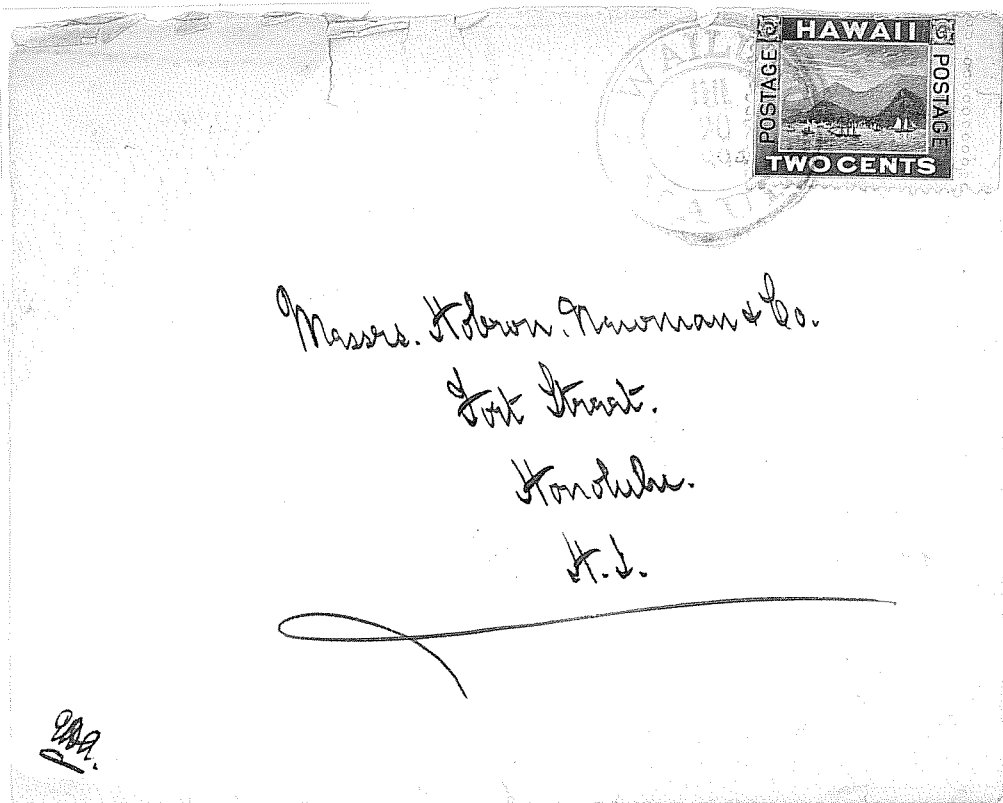 HAWAII
POSTAGE POSTAGE
TWO CENTS
WAILU
JUL
20
Messrs. Hobron, Newman & Co.
Fort Street.
Honolulu.
H.I.